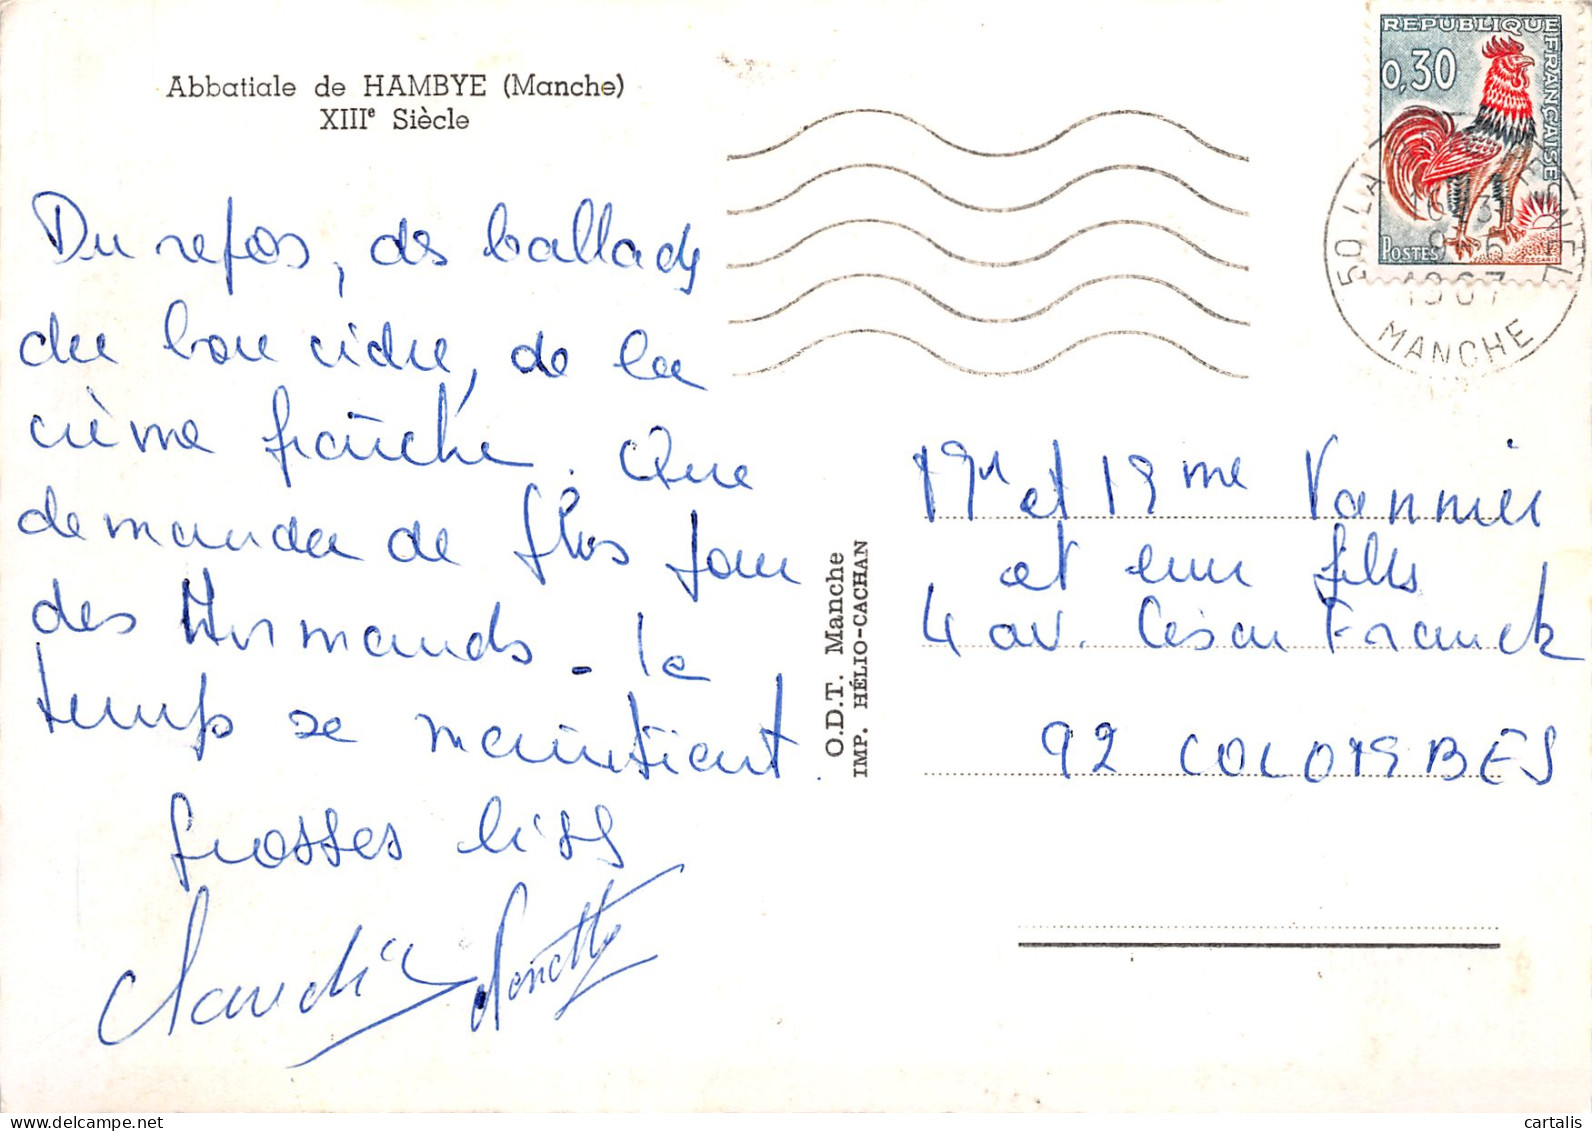 Abbatiale de HAMBYE (Manche)
XIIIe Siècle
Du repos, des ballades
du bon cidre, de la
crème fraîche. Que
demander de plus pour
des Normands. le
temps se maintient.
Grosses bises
Claudie
REPUBLIQUE FRANÇAISE
0,30
POSTES
DECARIS
50 LA
1967
MANCHE
Mr et Mme Vannier
et leur fils
4 av. César Franck
92 COLOMBES
O.D.T. Manche
IMP. HÉLIO-CACHAN
cartalis
www.delcampe.net